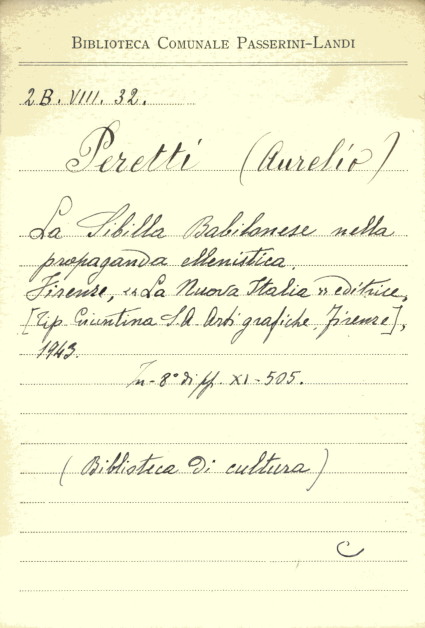 BIBLIOTECA COMUNALE PASSERINI-LANDI
2 B. VIII. 32.
Peretti (Aurelio)
La Sibilla Babilonese nella
propaganda ellenistica.
Firenze, «La Nuova Italia» editrice,
[Tip. Giuntina S.A. Arti grafiche, Firenze],
1943.
In-8° di pp. XI-505.
(Biblioteca di cultura)
C